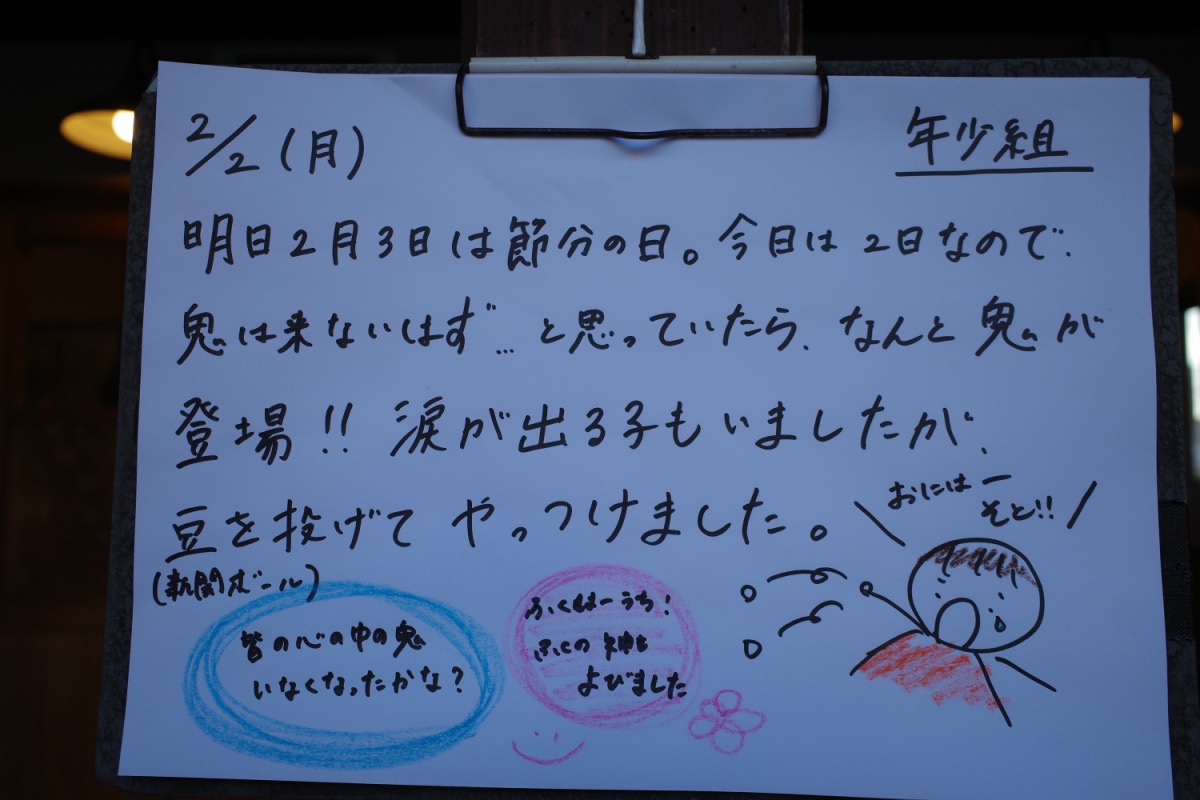 2/2(月)
年少組
明日2月3日は節分の日。今日は2日なので、
鬼は来ないはず…と思っていたら、なんと鬼が
登場!!涙が出る子もいましたが、
豆を投げて やっつけました。
(新聞ボール)
おにはー
そと!!
皆の心の中の鬼
いなくなったかな?
ふくはーうち!
ふくの神も
よびました